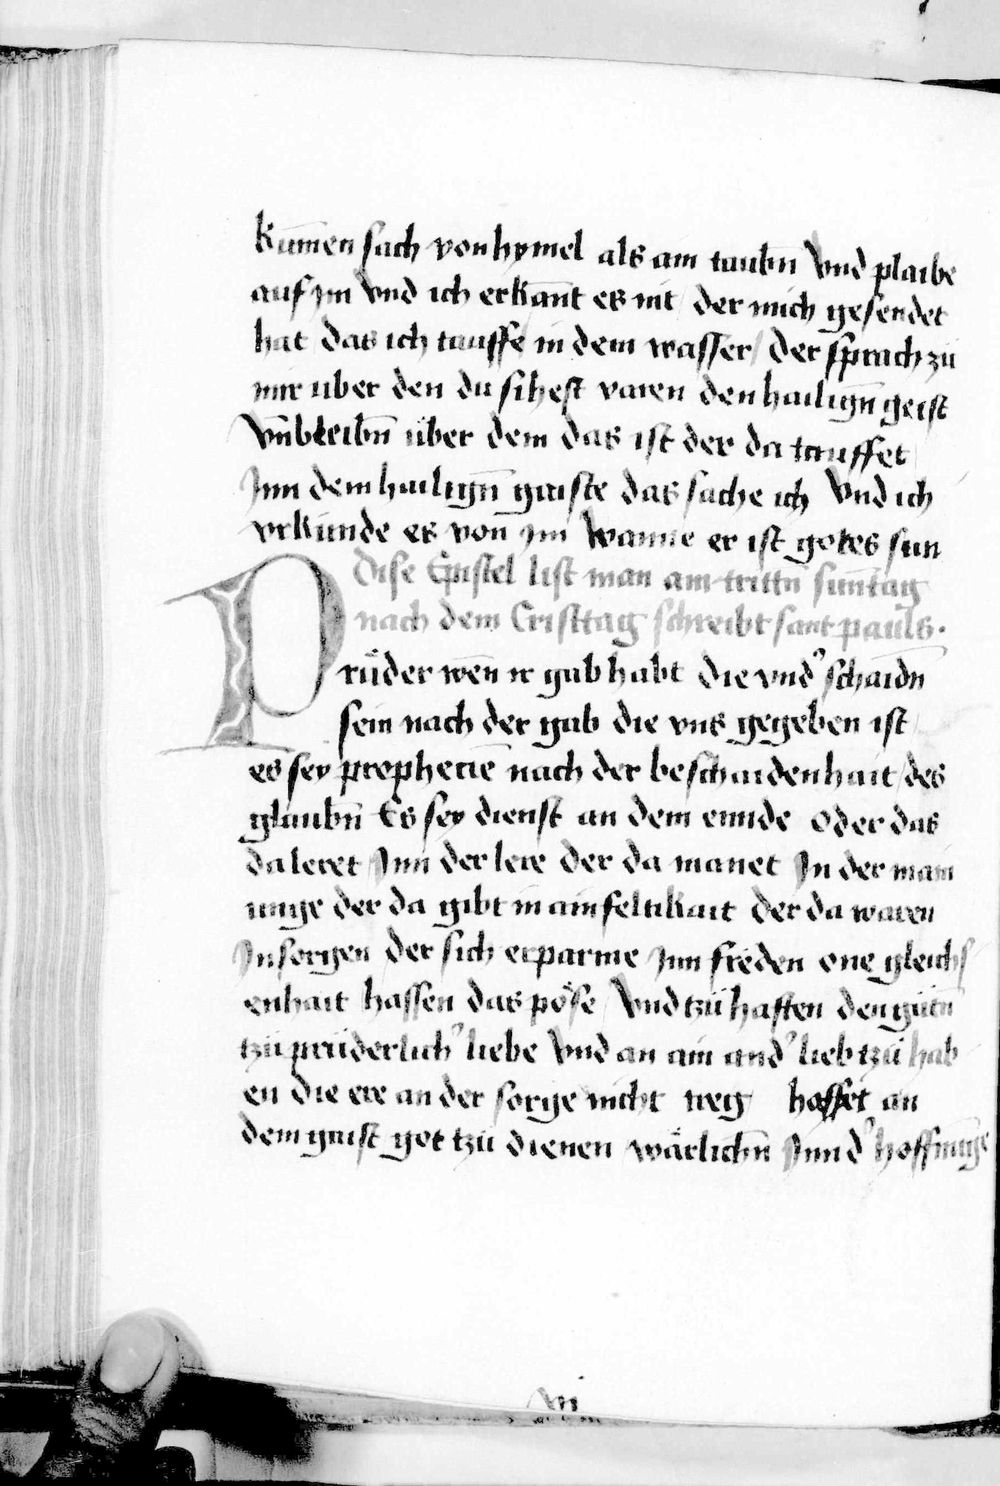 kūmen sach von hymel als ain taubn̄ Vnd plaibe
auf jm Vnd ich erkānt es nit der mich gesendet
hat das ich tauffe in dem wasser / der sprach zü
mir uber den du sihest varen den hailign̄ geist
Vn̄ bleibn̄ über dem das ist der da tauffet
Jnn dem hailign̄ gaiste das sache ich Vnd ich
vrkunde es von jm Wanne er ist gotes sun
Dise Epistel list man am trittn̄ sun̄tag
nach dem Cristtag schreibt sant pauls.
Prüder wen̄ ir gab habt die vnd' schaidn̄
sein nach der gab die vns gegeben ist
es sey prophecie nach der beschaidenhait / des
glaubn̄ Es sey dienst an dem ennde oder das
da leret Jnn der lere der da manet Jn der man
unge der da gibt in ainfeltikait der da waren
Jn sorgen der sich erparme Jnn freden one gleichs
enhait hassen das pöse / Vnd tzü haften den gütn̄
tzü prüderlich' liebe Vnd an ain and' lieb tzü hab
en die ere an der sorge nicht treg hasset an
dem gaist got tzü dienen wärlichn̄ Jnn d' hoffnūge
xvj